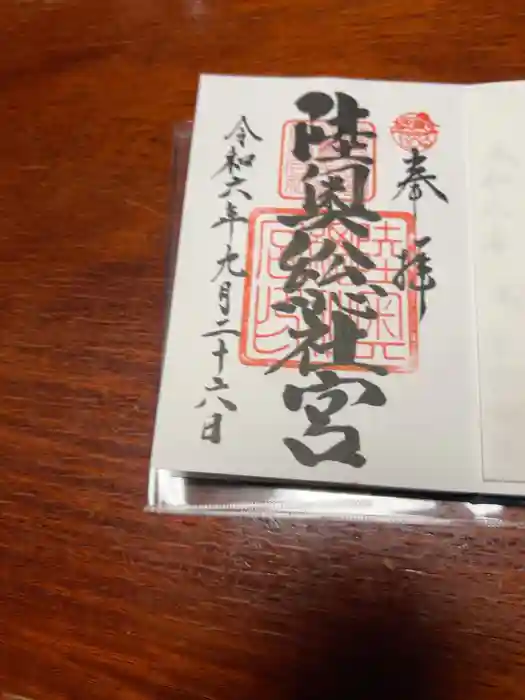 奉拝
陸奥総社宮
令和六年九月二十六日